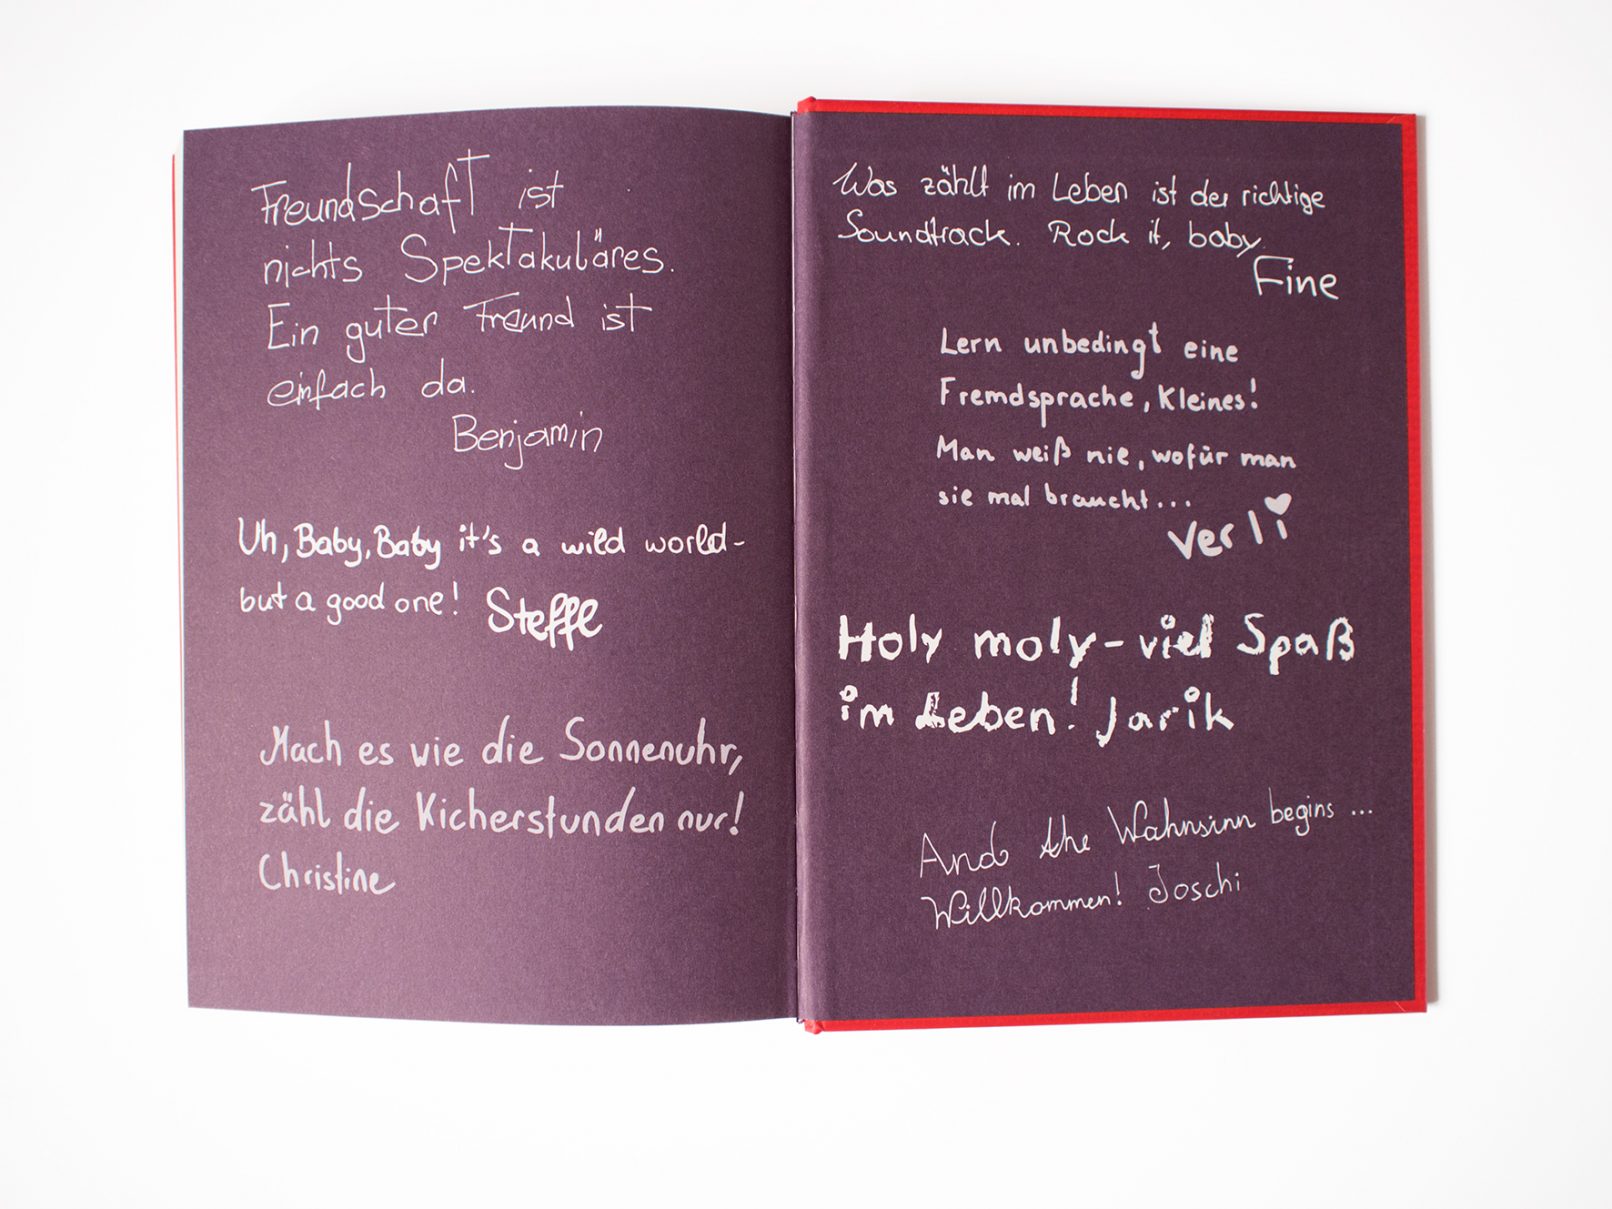 Freundschaft ist
nichts Spektakuläres.
Ein guter Freund ist
einfach da.
Benjamin
Uh, Baby, Baby it's a wild world-
but a good one! Steffe
Mach es wie die Sonnenuhr,
zähl die Kicherstunden nur!
Christine
Was zählt im Leben ist der richtige
Soundtrack. Rock it, baby.
Fine
Lern unbedingt eine
Fremdsprache, Kleines!
Man weiß nie, wofür man
sie mal braucht...
Verli
Holy moly - viel Spaß
im Leben! Jarik
And the Wahnsinn begins ...
Willkommen! Joschi